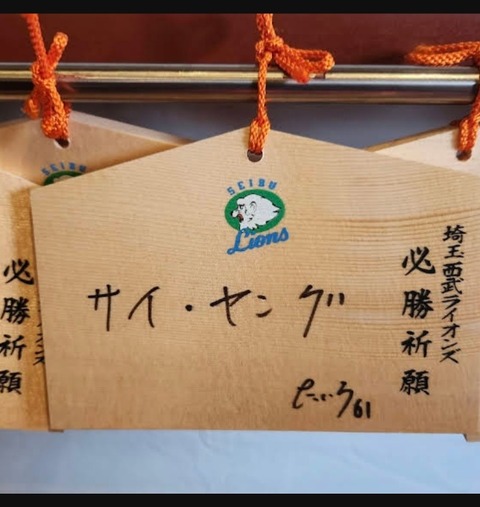 SEIBU
Lions
サイ・ヤング
埼玉西武ライオンズ
必勝祈願
61
必勝祈願
SEIBU